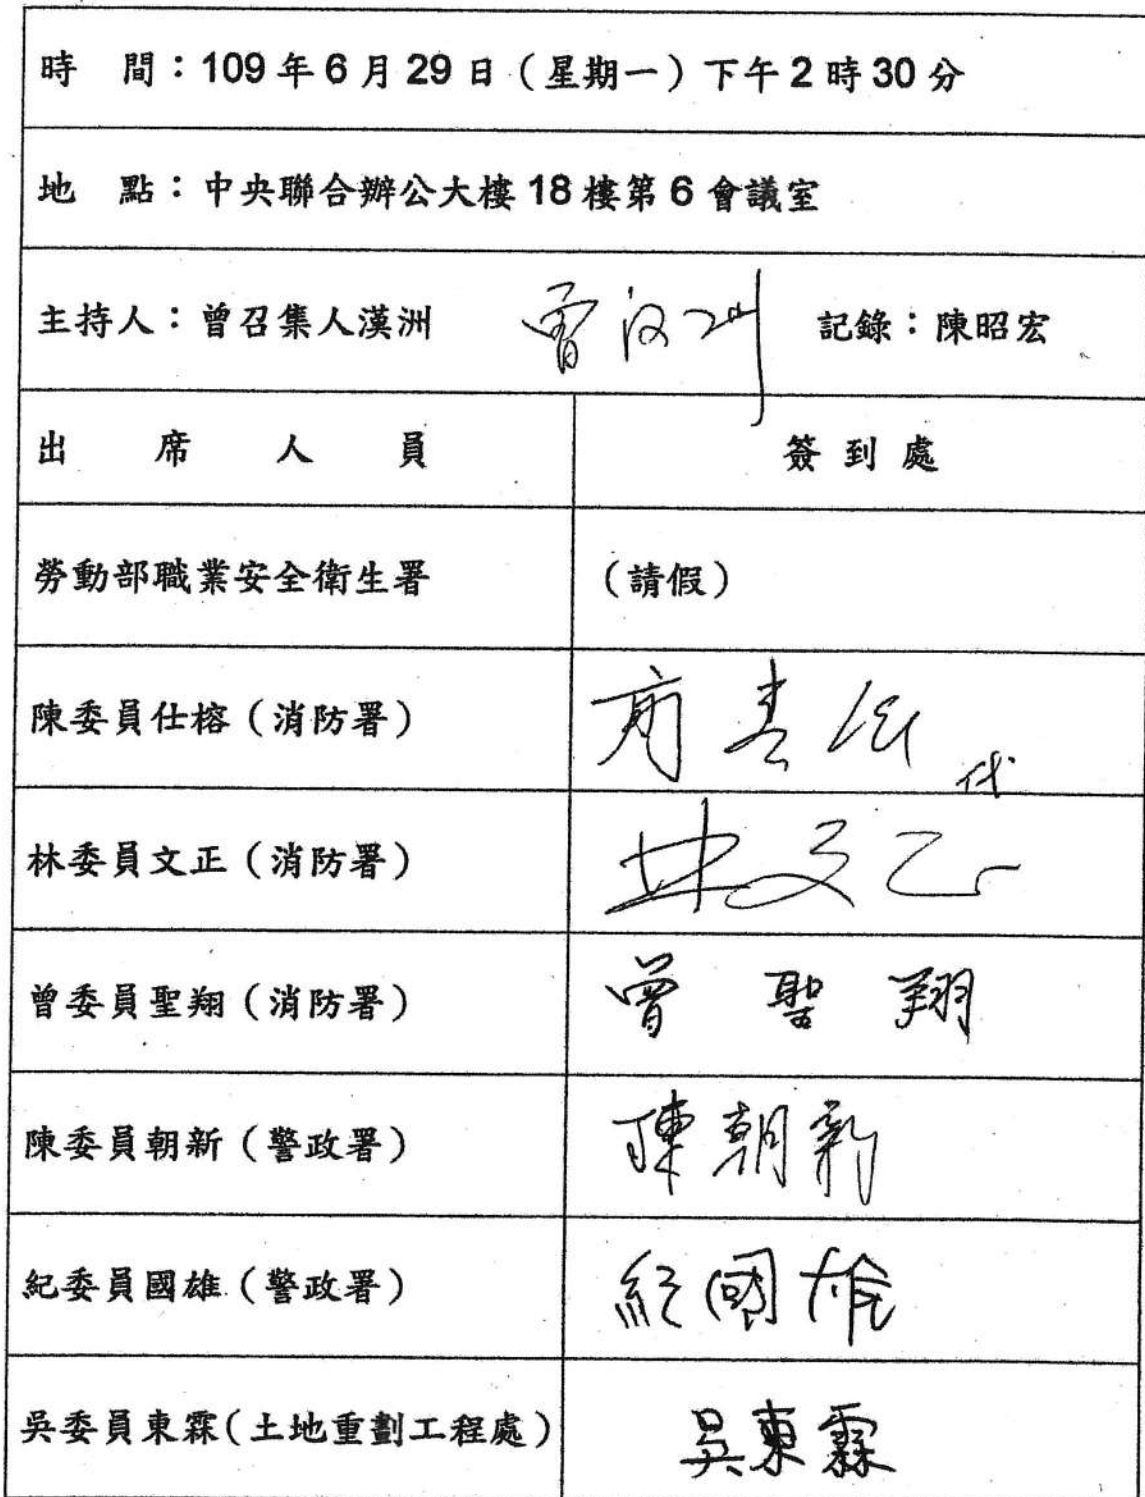 時　間：109年6月29日（星期一）下午2時30分
地　點：中央聯合辦公大樓18樓第6會議室
主持人：曾召集人漢洲　曾汉洲　記錄：陳昭宏
出　席　人　員　簽到處
勞動部職業安全衛生署　（請假）
陳委員仕榕（消防署）　代
林委員文正（消防署）　林文正
曾委員聖翔（消防署）　曾聖翔
陳委員朝新（警政署）　陳朝新
紀委員國雄（警政署）　紀國雄
吳委員東霖(土地重劃工程處)　吳東霖